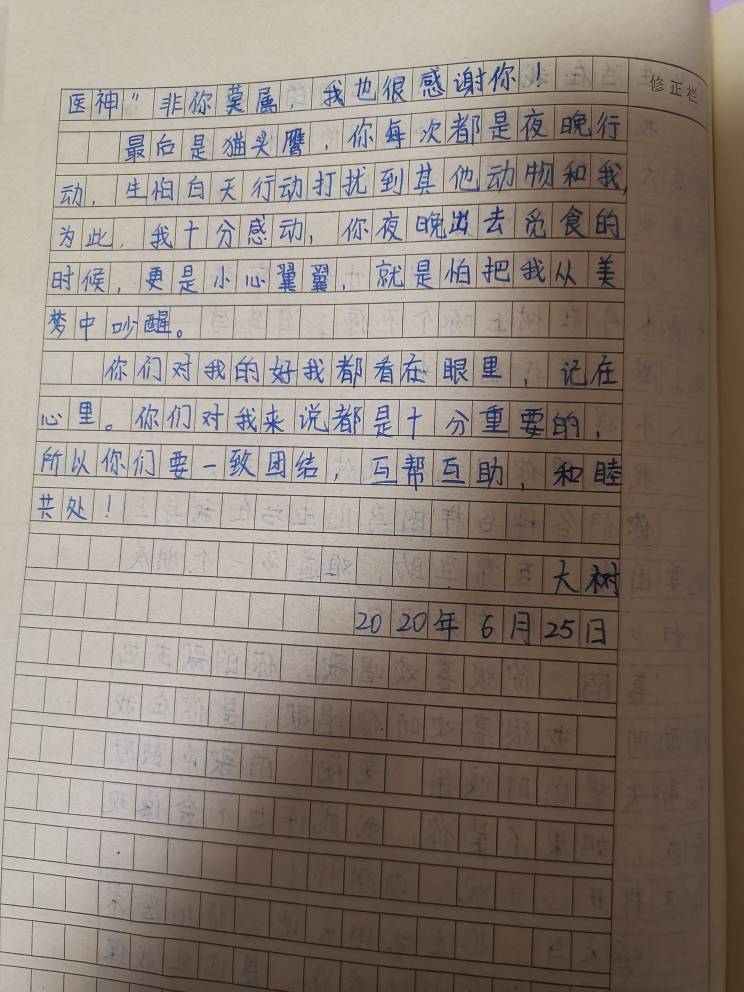 修正栏
医神”非你莫属，我也很感谢你！
最后是猫头鹰，你每次都是夜晚行
动，生怕白天行动打扰到其他动物和我，
为此，我十分感动，你夜晚出去觅食的
时候，更是小心翼翼，就是怕把我从美
梦中吵醒。
你们对我的好我都看在眼里，记在
心里。你们对我来说都是十分重要的，
所以你们要一致团结，互帮互助，和睦
共处！
大树
2020年6月25日